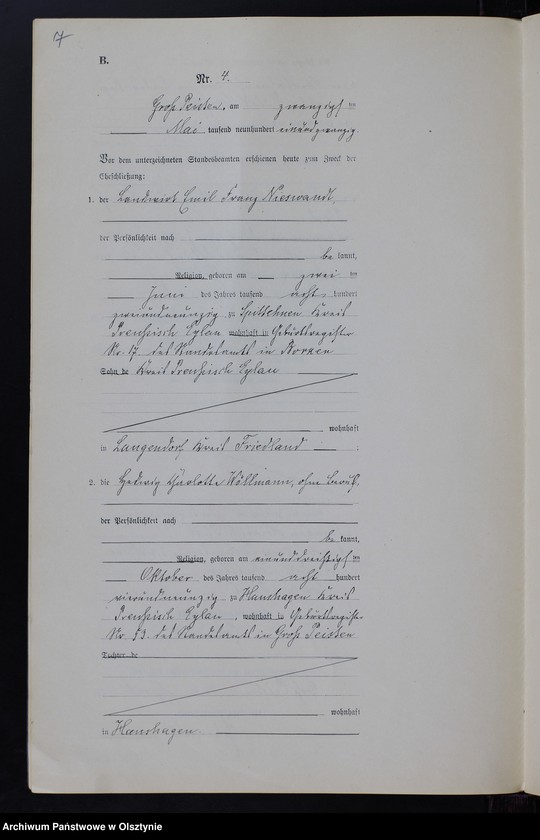 7
B.
Nr. 4.
Groß Peisten, am zwanzigsten
Mai tausend neunhundert einundzwanzig
Vor dem unterzeichneten Standesbeamten erschienen heute zum Zweck der
Eheschließung:
1. der Landwirt Emil Franz Nieswandt,
der Persönlichkeit nach
be kannt,
Religion, geboren am zwei ten
Juni des Jahres tausend acht hundert
zweiundneunzig zu Spittehnen Kreis
Preußisch Eylau wohnhaft in Geburtsregister
Nr. 17 des Standesamts in
Sohn de Kreis Preußisch Eylau
wohnhaft
in Langendorf Kreis Friedland
2. die Hedwig Charlotte Wöllmann, ohne Beruf,
der Persönlichkeit nach
be kannt,
Religion, geboren am einunddreißigsten
Oktober des Jahres tausend acht hundert
vierundneunzig zu Hanshagen Kreis
Preußisch Eylau, wohnhaft in Geburtsregister
Nr. 53. des Standesamts in Groß Peisten
Tochter de
wohnhaft
in Hanshagen
Archiwum Państwowe w Olsztynie